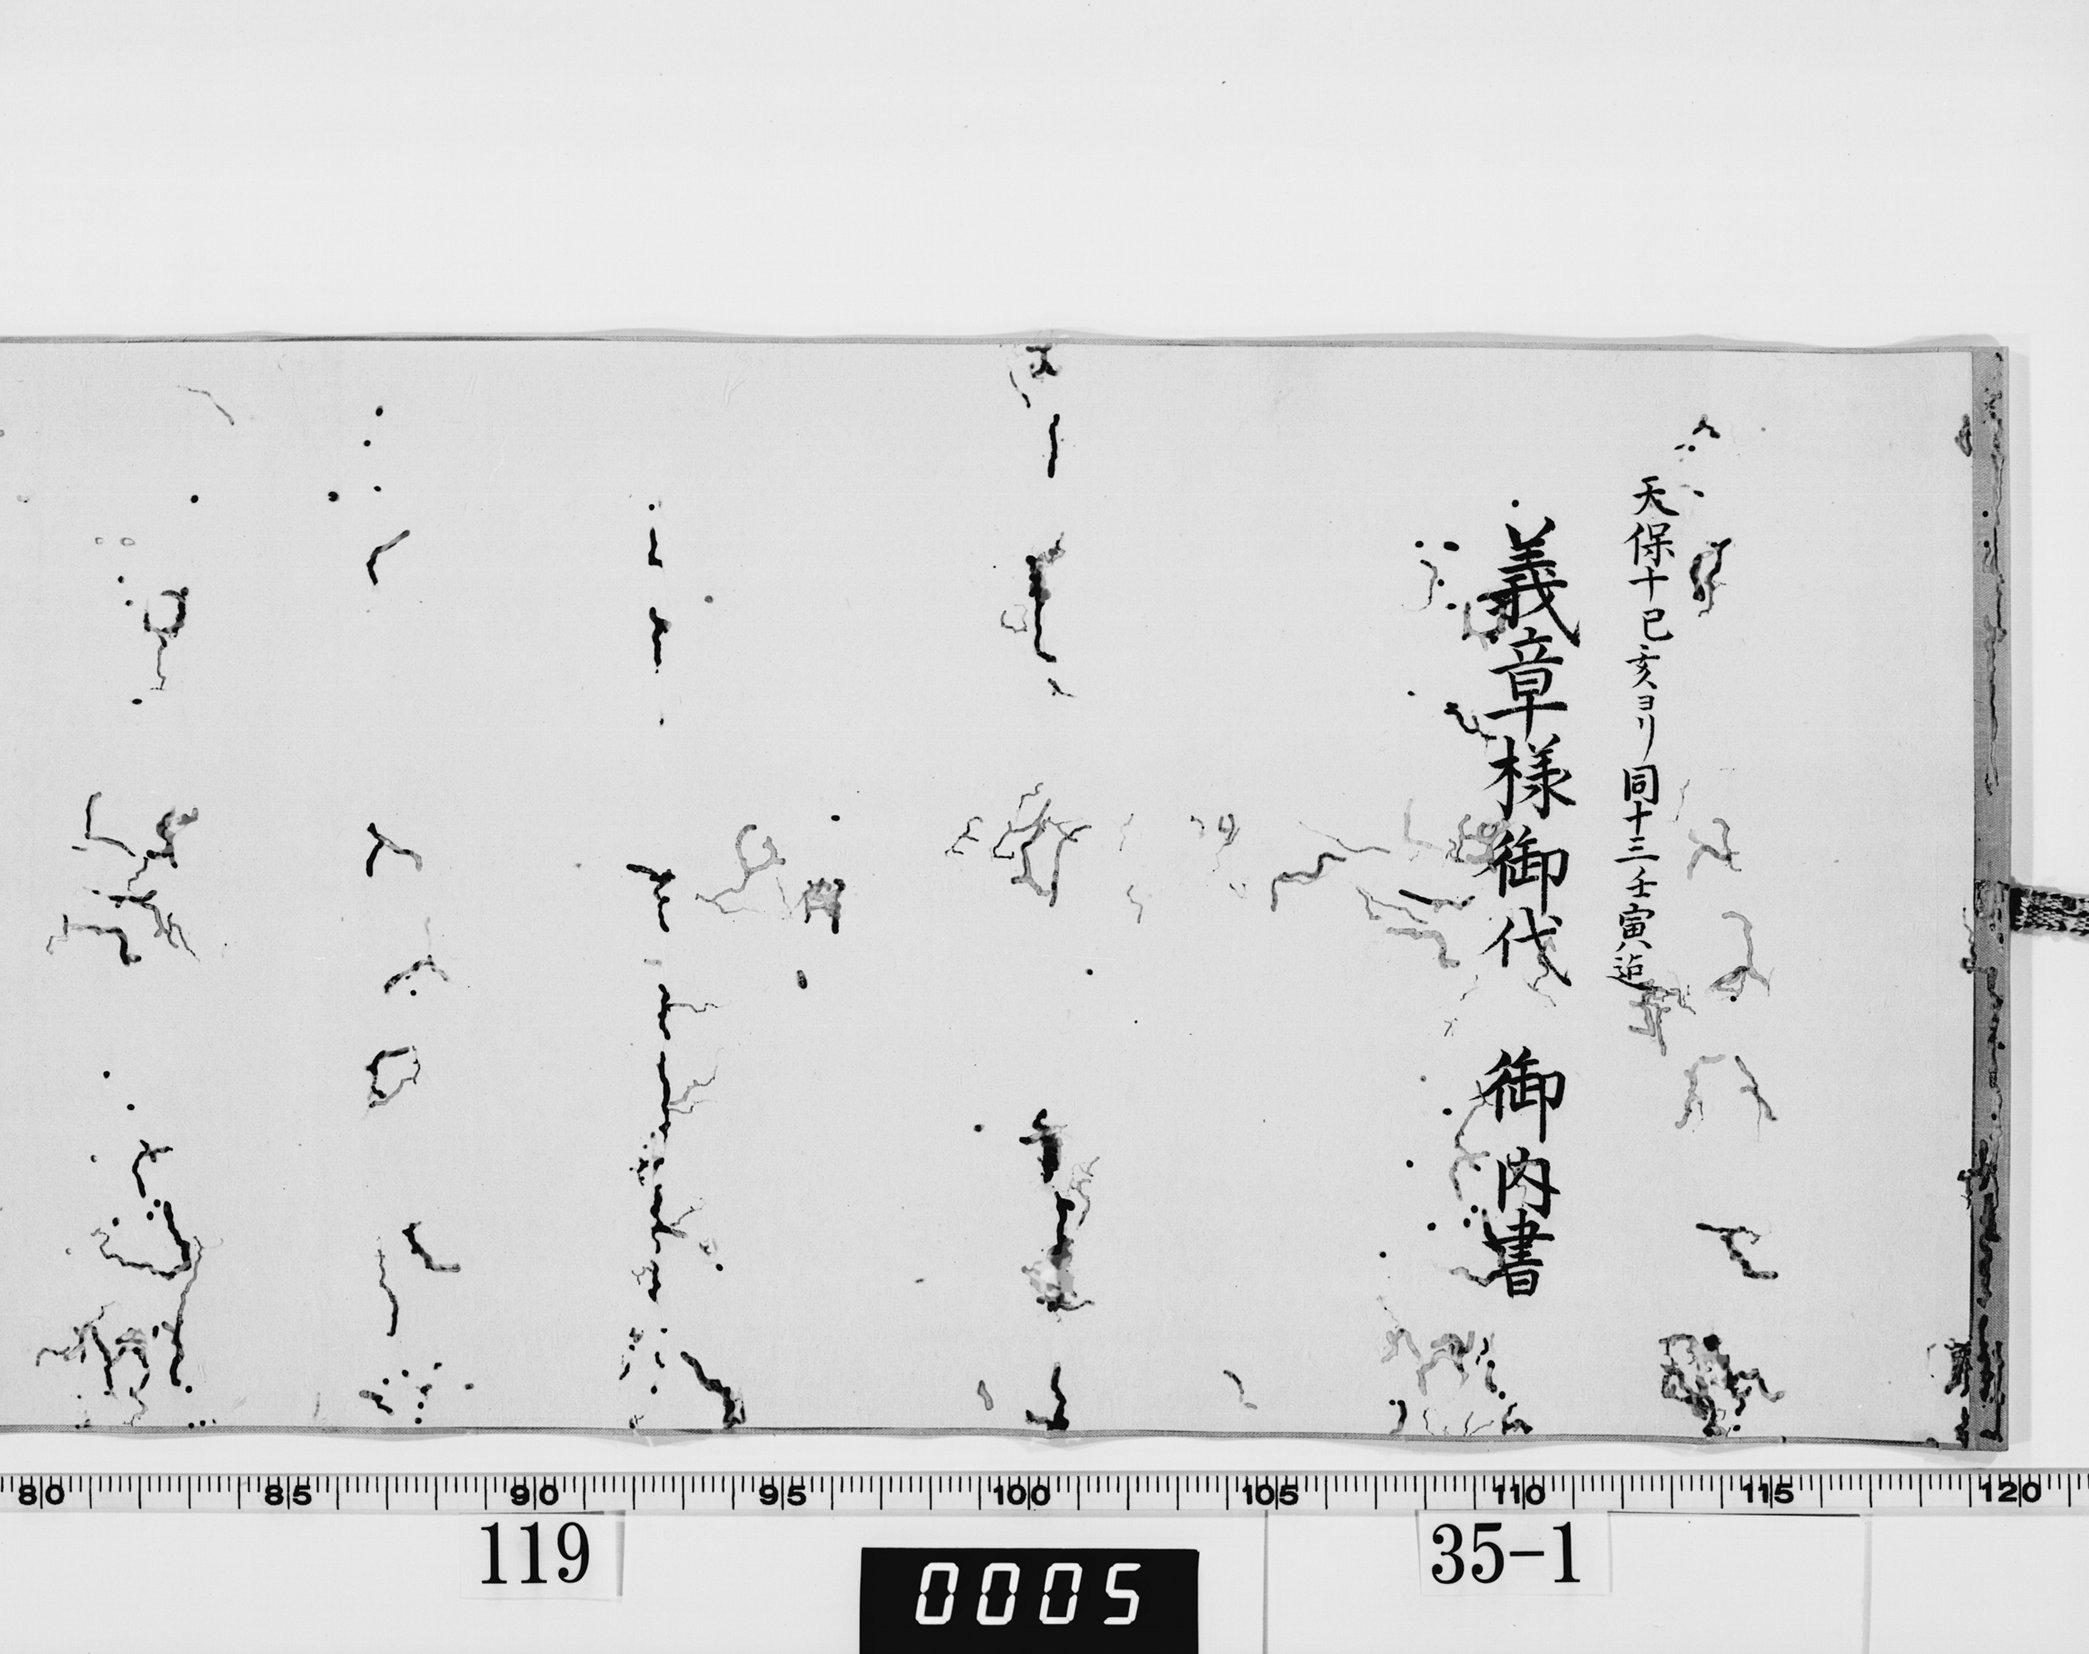 天保十己亥ヨリ同十三壬寅迄
義章様御代　御内書
80 85 90 95 100 105 110 115 120
119
35-1
0005